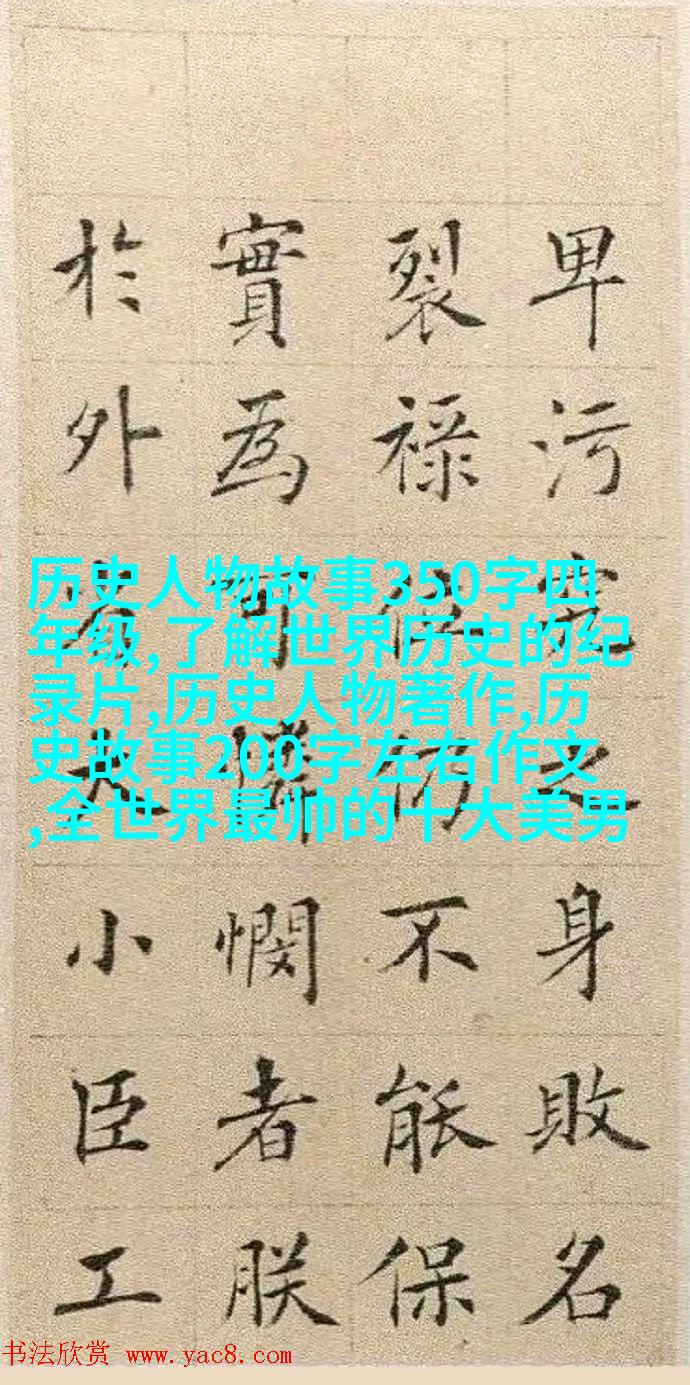 卑污之身敗名
裂禄位仍不能保
實為可憐憫者朕
於外大小臣工
历史人物故事350字四
年级,了解世界历史的纪
录片,历史人物著作,历
史故事200字左右作文
,全世界最帅的十大美男
书法欣赏 www.yac8.com